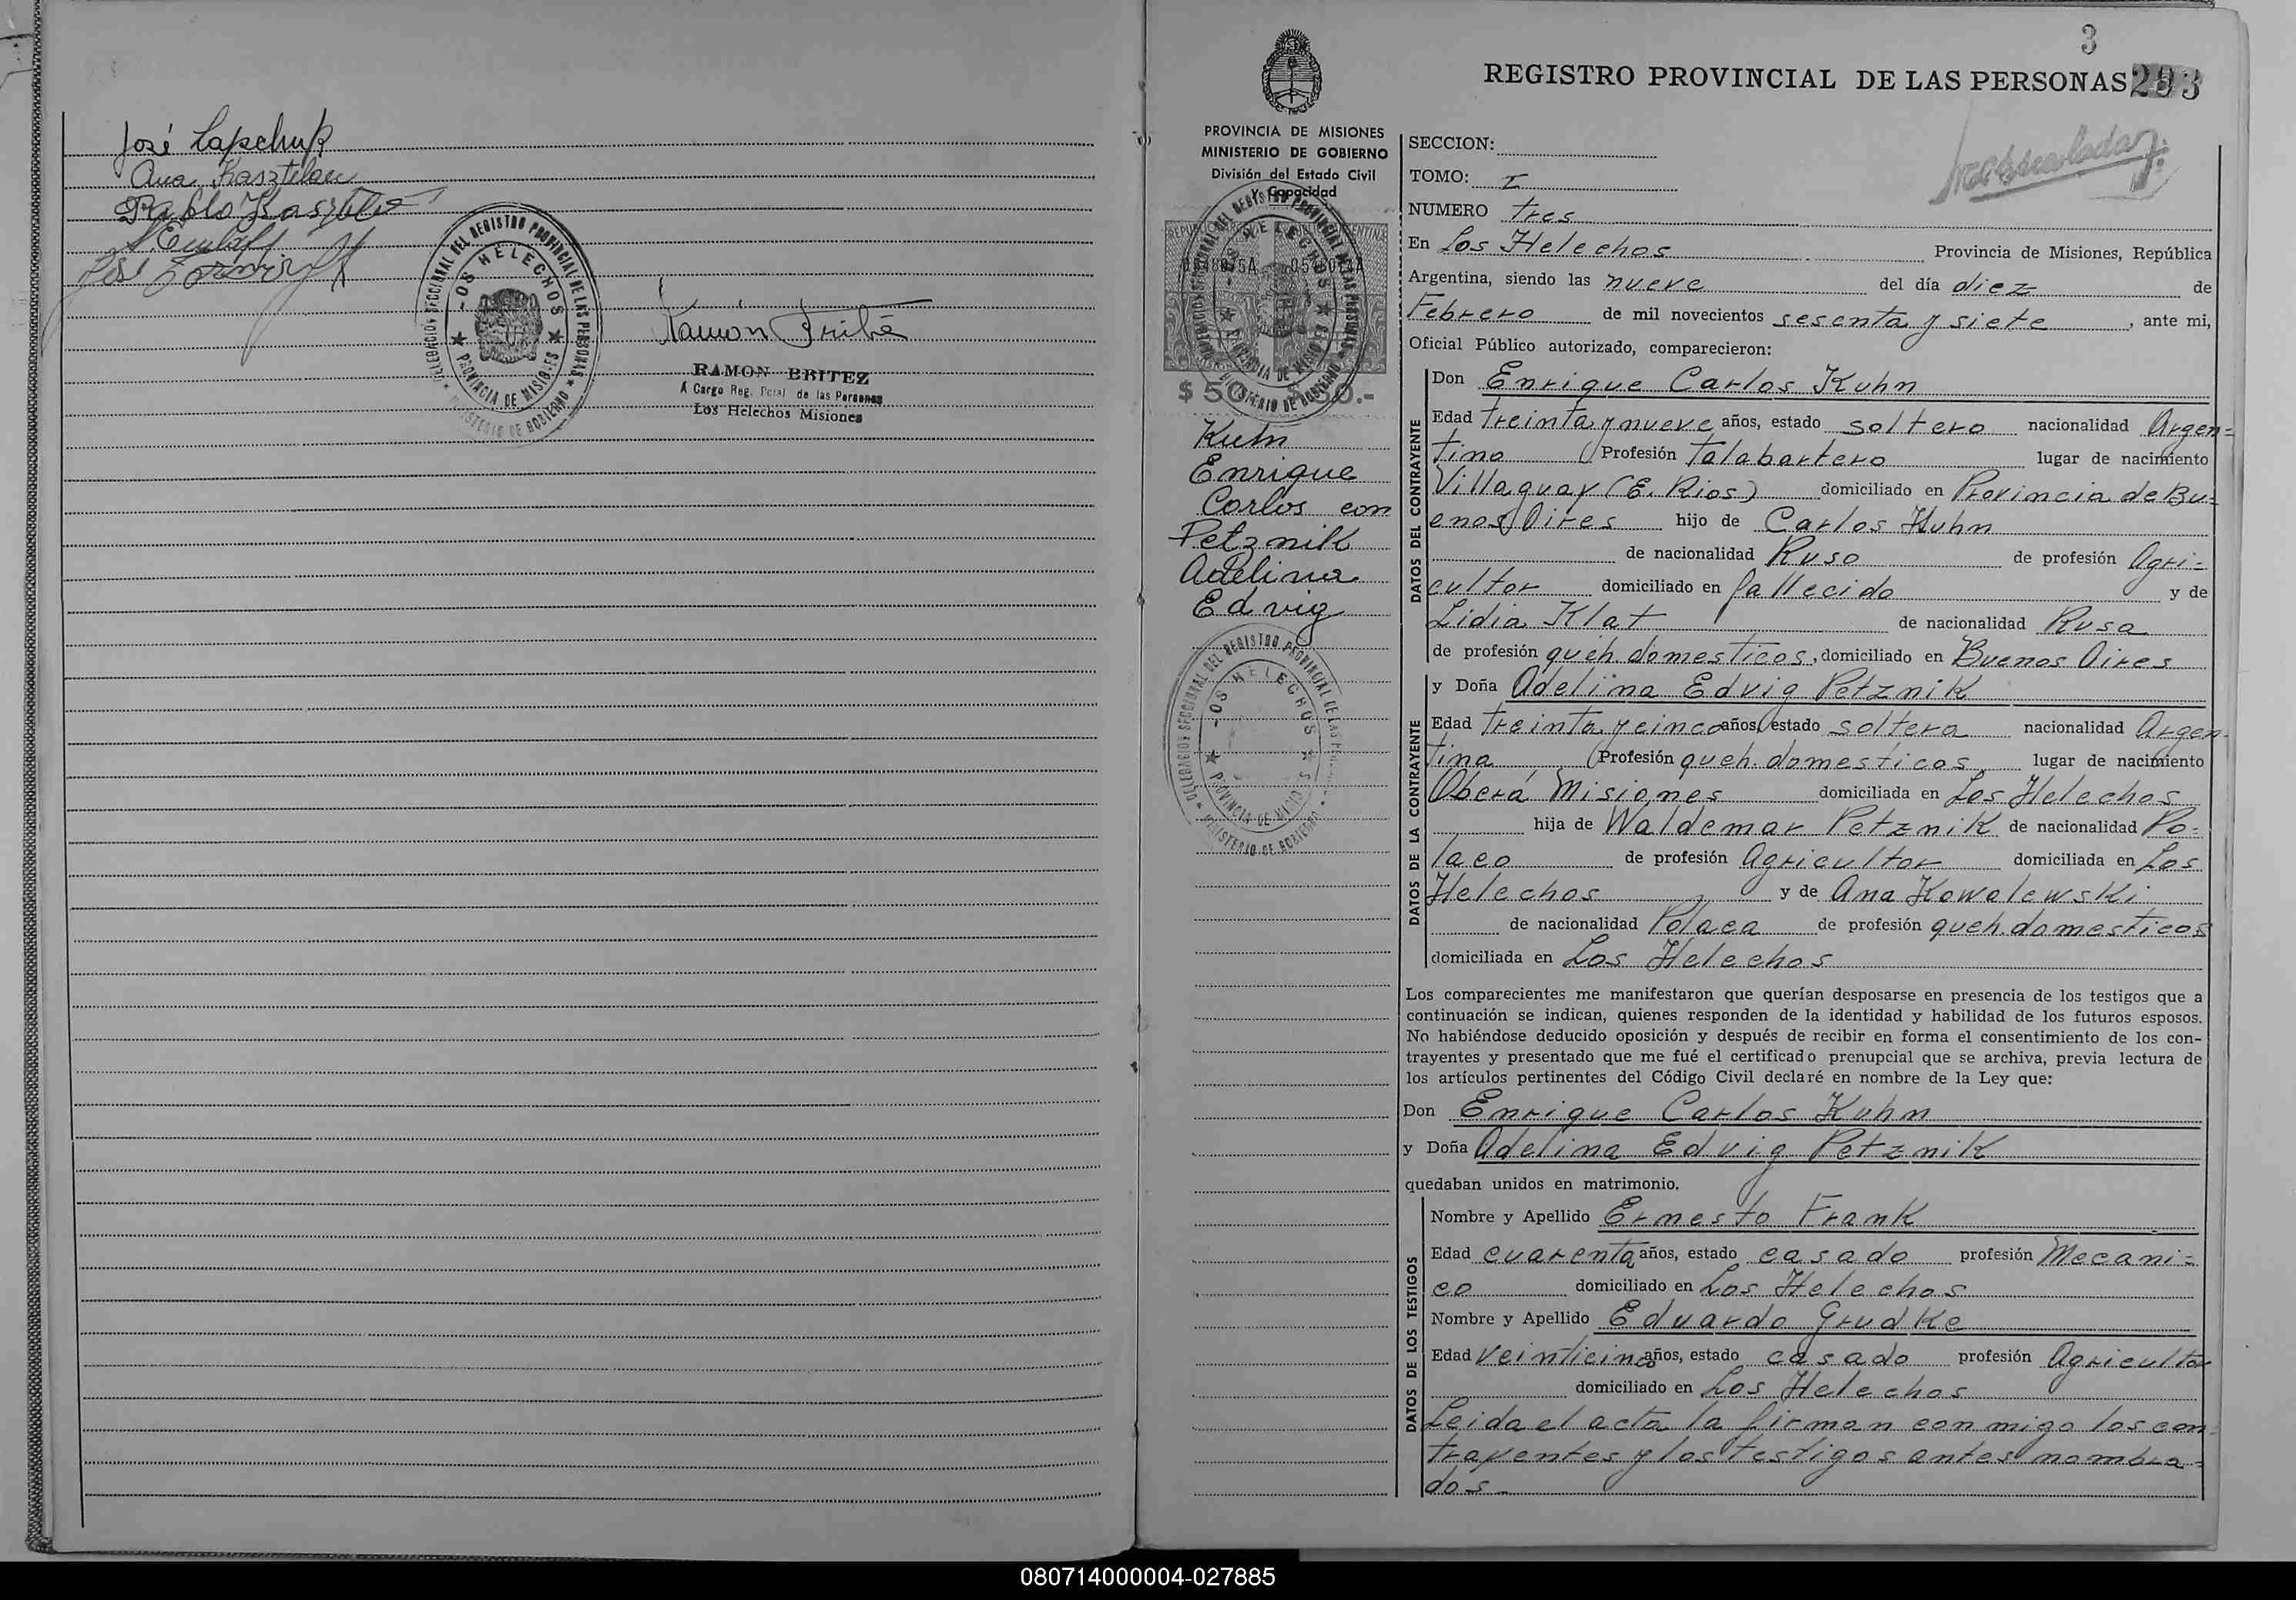 José Lapchuk
Ana Kasztelan
Pablo
RAMON BRITEZ
A Cargo Reg. Pcial de las Personas
Los Helechos Misiones
DELEGACION SECCIONAL DEL REGISTRO PROVINCIAL DE LAS PERSONAS
LOS HELECHOS
PROVINCIA DE MISIONES
MINISTERIO DE GOBIERNO
3
REGISTRO PROVINCIAL DE LAS PERSONAS 293
PROVINCIA DE MISIONES
MINISTERIO DE GOBIERNO
División del Estado Civil
y Capacidad
$ 50 50.-
Kuhn
Enrique
Carlos con
Petznik
Adelina
Edvig
DELEGACION SECCIONAL DEL REGISTRO PROVINCIAL DE LAS
LOS HELECHOS
PROVINCIA DE MISIONES
MINISTERIO DE GOBIERNO
SECCION:
TOMO: I
NUMERO tres
En Los Helechos Provincia de Misiones, República
Argentina, siendo las nueve del día diez de
Febrero de mil novecientos sesenta y siete, ante mi,
Oficial Público autorizado, comparecieron:
DATOS DEL CONTRAYENTE
Don Enrique Carlos Kuhn
Edad treinta y nueve años, estado soltero nacionalidad Argen=
tino Profesión Talabartero lugar de nacimiento
Villaguay (E. Rios) domiciliado en Provincia de Bu=
enos Aires hijo de Carlos Kuhn
de nacionalidad Ruso de profesión Agri=
cultor domiciliado en fallecido y de
Lidia Klat de nacionalidad Rusa
de profesión queh. domesticos, domiciliado en Buenos Aires
DATOS DE LA CONTRAYENTE
y Doña Adelina Edvig Petznik
Edad treinta y cinco años, estado soltera nacionalidad Argen-
tina Profesión queh. domésticos lugar de nacimiento
Oberá Misiones domiciliada en Los Helechos
hija de Waldemar Petznik de nacionalidad Po=
laco de profesión Agricultor domiciliada en Los
Helechos y de Ana Kowalewski
de nacionalidad Polaca de profesión queh. domesticos
domiciliada en Los Helechos
Los comparecientes me manifestaron que querían desposarse en presencia de los testigos que a
continuación se indican, quienes responden de la identidad y habilidad de los futuros esposos.
No habiéndose deducido oposición y después de recibir en forma el consentimiento de los con-
trayentes y presentado que me fué el certificado prenupcial que se archiva, previa lectura de
los artículos pertinentes del Código Civil declaré en nombre de la Ley que:
Don Enrique Carlos Kuhn
y Doña Adelina Edvig Petznik
quedaban unidos en matrimonio.
DATOS DE LOS TESTIGOS
Nombre y Apellido Ernesto Frank
Edad cuarenta años, estado casado profesión Mecani=
co domiciliado en Los Helechos
Nombre y Apellido Eduardo Grudke
Edad veinticinco años, estado casado profesión Agricultor
domiciliado en Los Helechos
Leida el acta la firman con migo los con=
trayentes y los testigos antes nombra=
dos.-
080714000004-027885